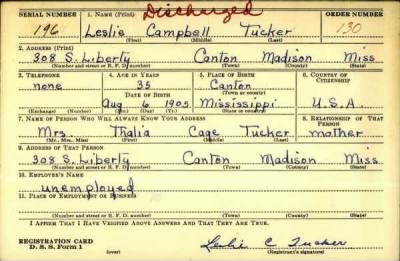 Discharged
SERIAL NUMBER 1. NAME (Print) ORDER NUMBER
196 Leslie Campbell Tucker 130
(First) (Middle) (Last)
2. ADDRESS (Print)
308 S. Liberty Canton Madison Miss
(Number and street or R. F. D. number) (Town) (County) (State)
3. TELEPHONE 4. AGE IN YEARS 5. PLACE OF BIRTH 6. COUNTRY OF CITIZENSHIP
none 35 Canton
DATE OF BIRTH (Town or county)
Aug 6 1905 Mississippi U.S.A.
(Exchange) (Number) (Mo.) (Day) (Yr.) (State or country)
7. NAME OF PERSON WHO WILL ALWAYS KNOW YOUR ADDRESS 8. RELATIONSHIP OF THAT PERSON
Mrs Thalia Cage Tucker mother
(Mr., Mrs., Miss) (First) (Middle) (Last)
9. ADDRESS OF THAT PERSON
308 S. Liberty Canton Madison Miss
(Number and street or R. F. D. number) (Town) (County) (State)
10. EMPLOYER'S NAME
unemployed
11. PLACE OF EMPLOYMENT OR BUSINESS
(Number and street or R. F. D. number) (Town) (County) (State)
I AFFIRM THAT I HAVE VERIFIED ABOVE ANSWERS AND THAT THEY ARE TRUE.
REGISTRATION CARD
D. S. S. Form 1 Leslie C Tucker
(Registrant's signature)